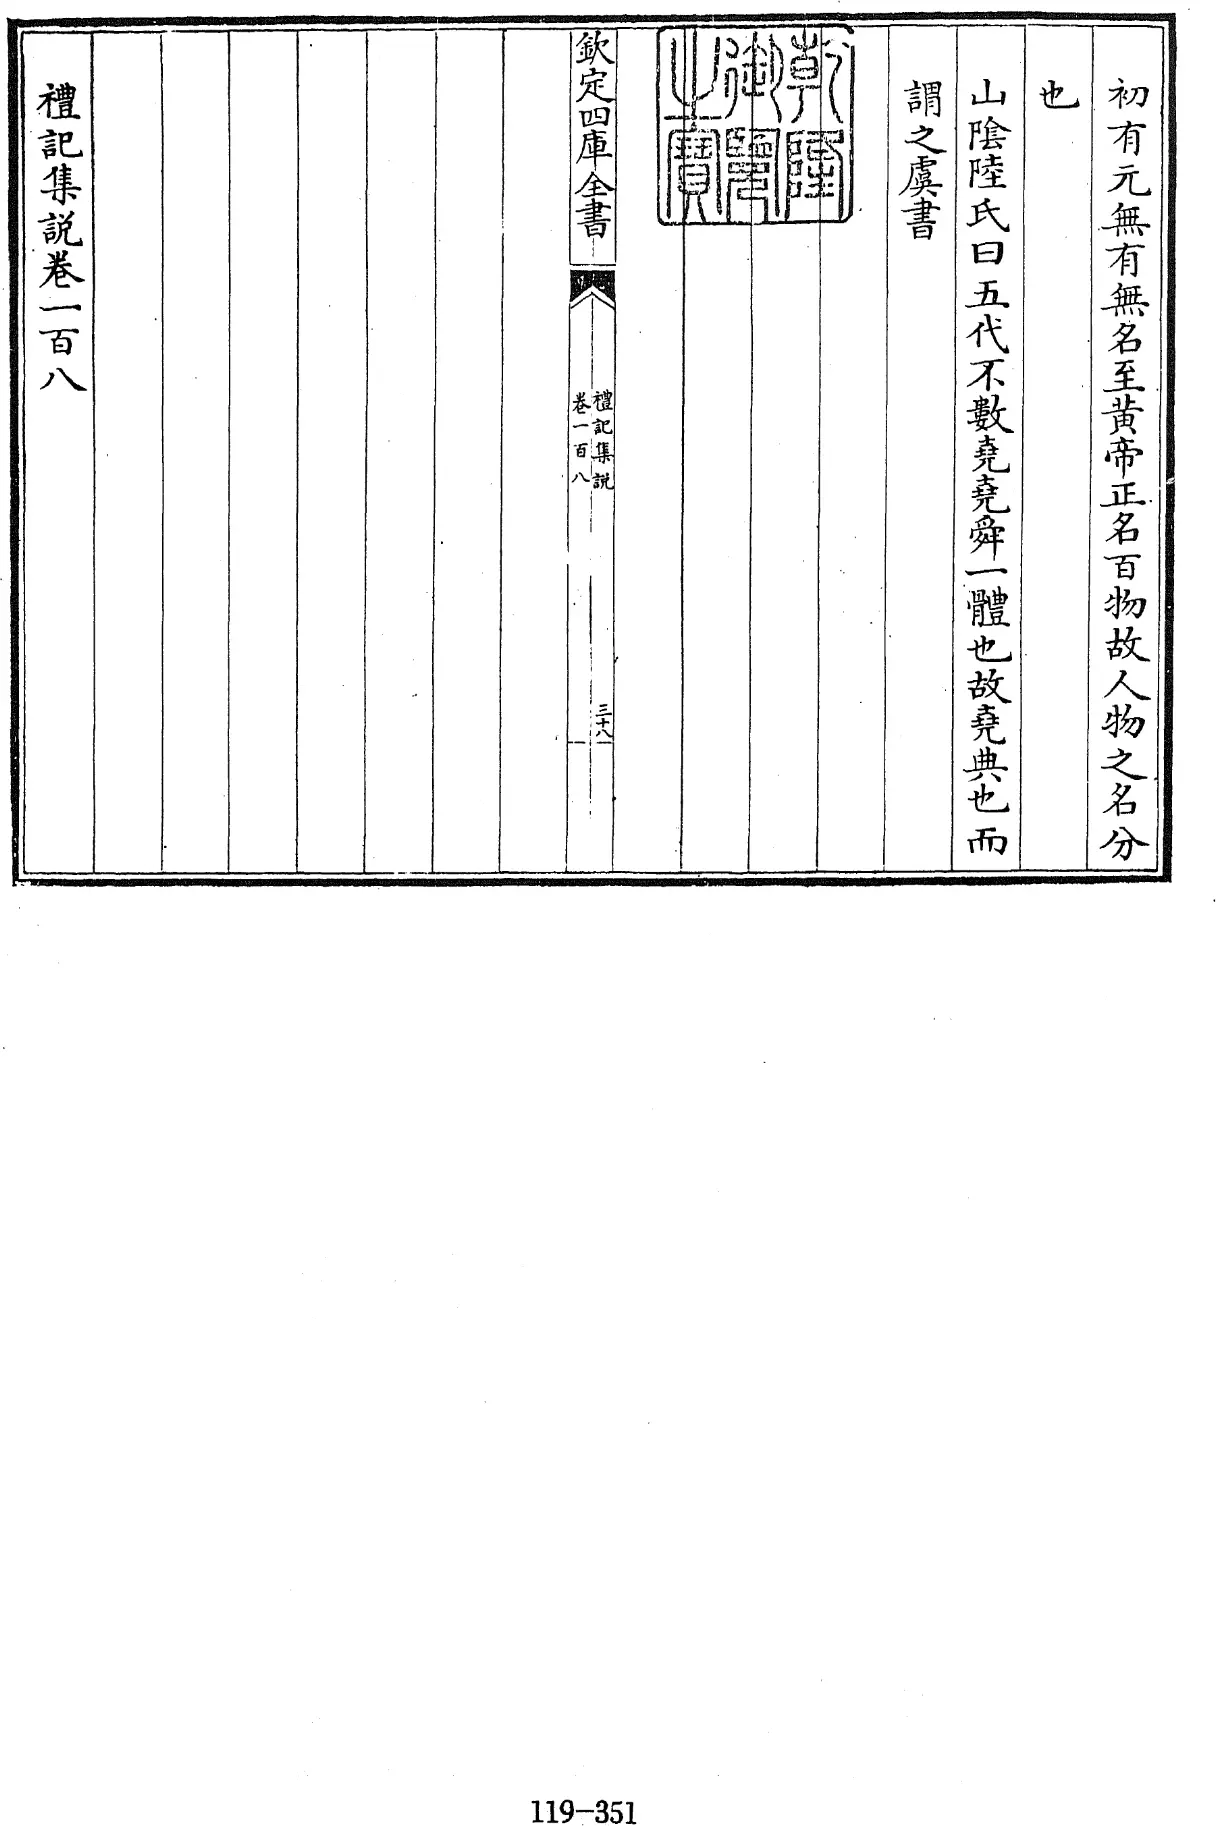 初有元無有無名至黄帝正名百物故人物之名分
也
山陰陸氏曰五代不數堯堯舜一體也故堯典也而
謂之虞書
乾隆
御覽
之寶
欽定四庫全書
禮記集説
卷一百八
三十八
禮記集説卷一百八
119-351